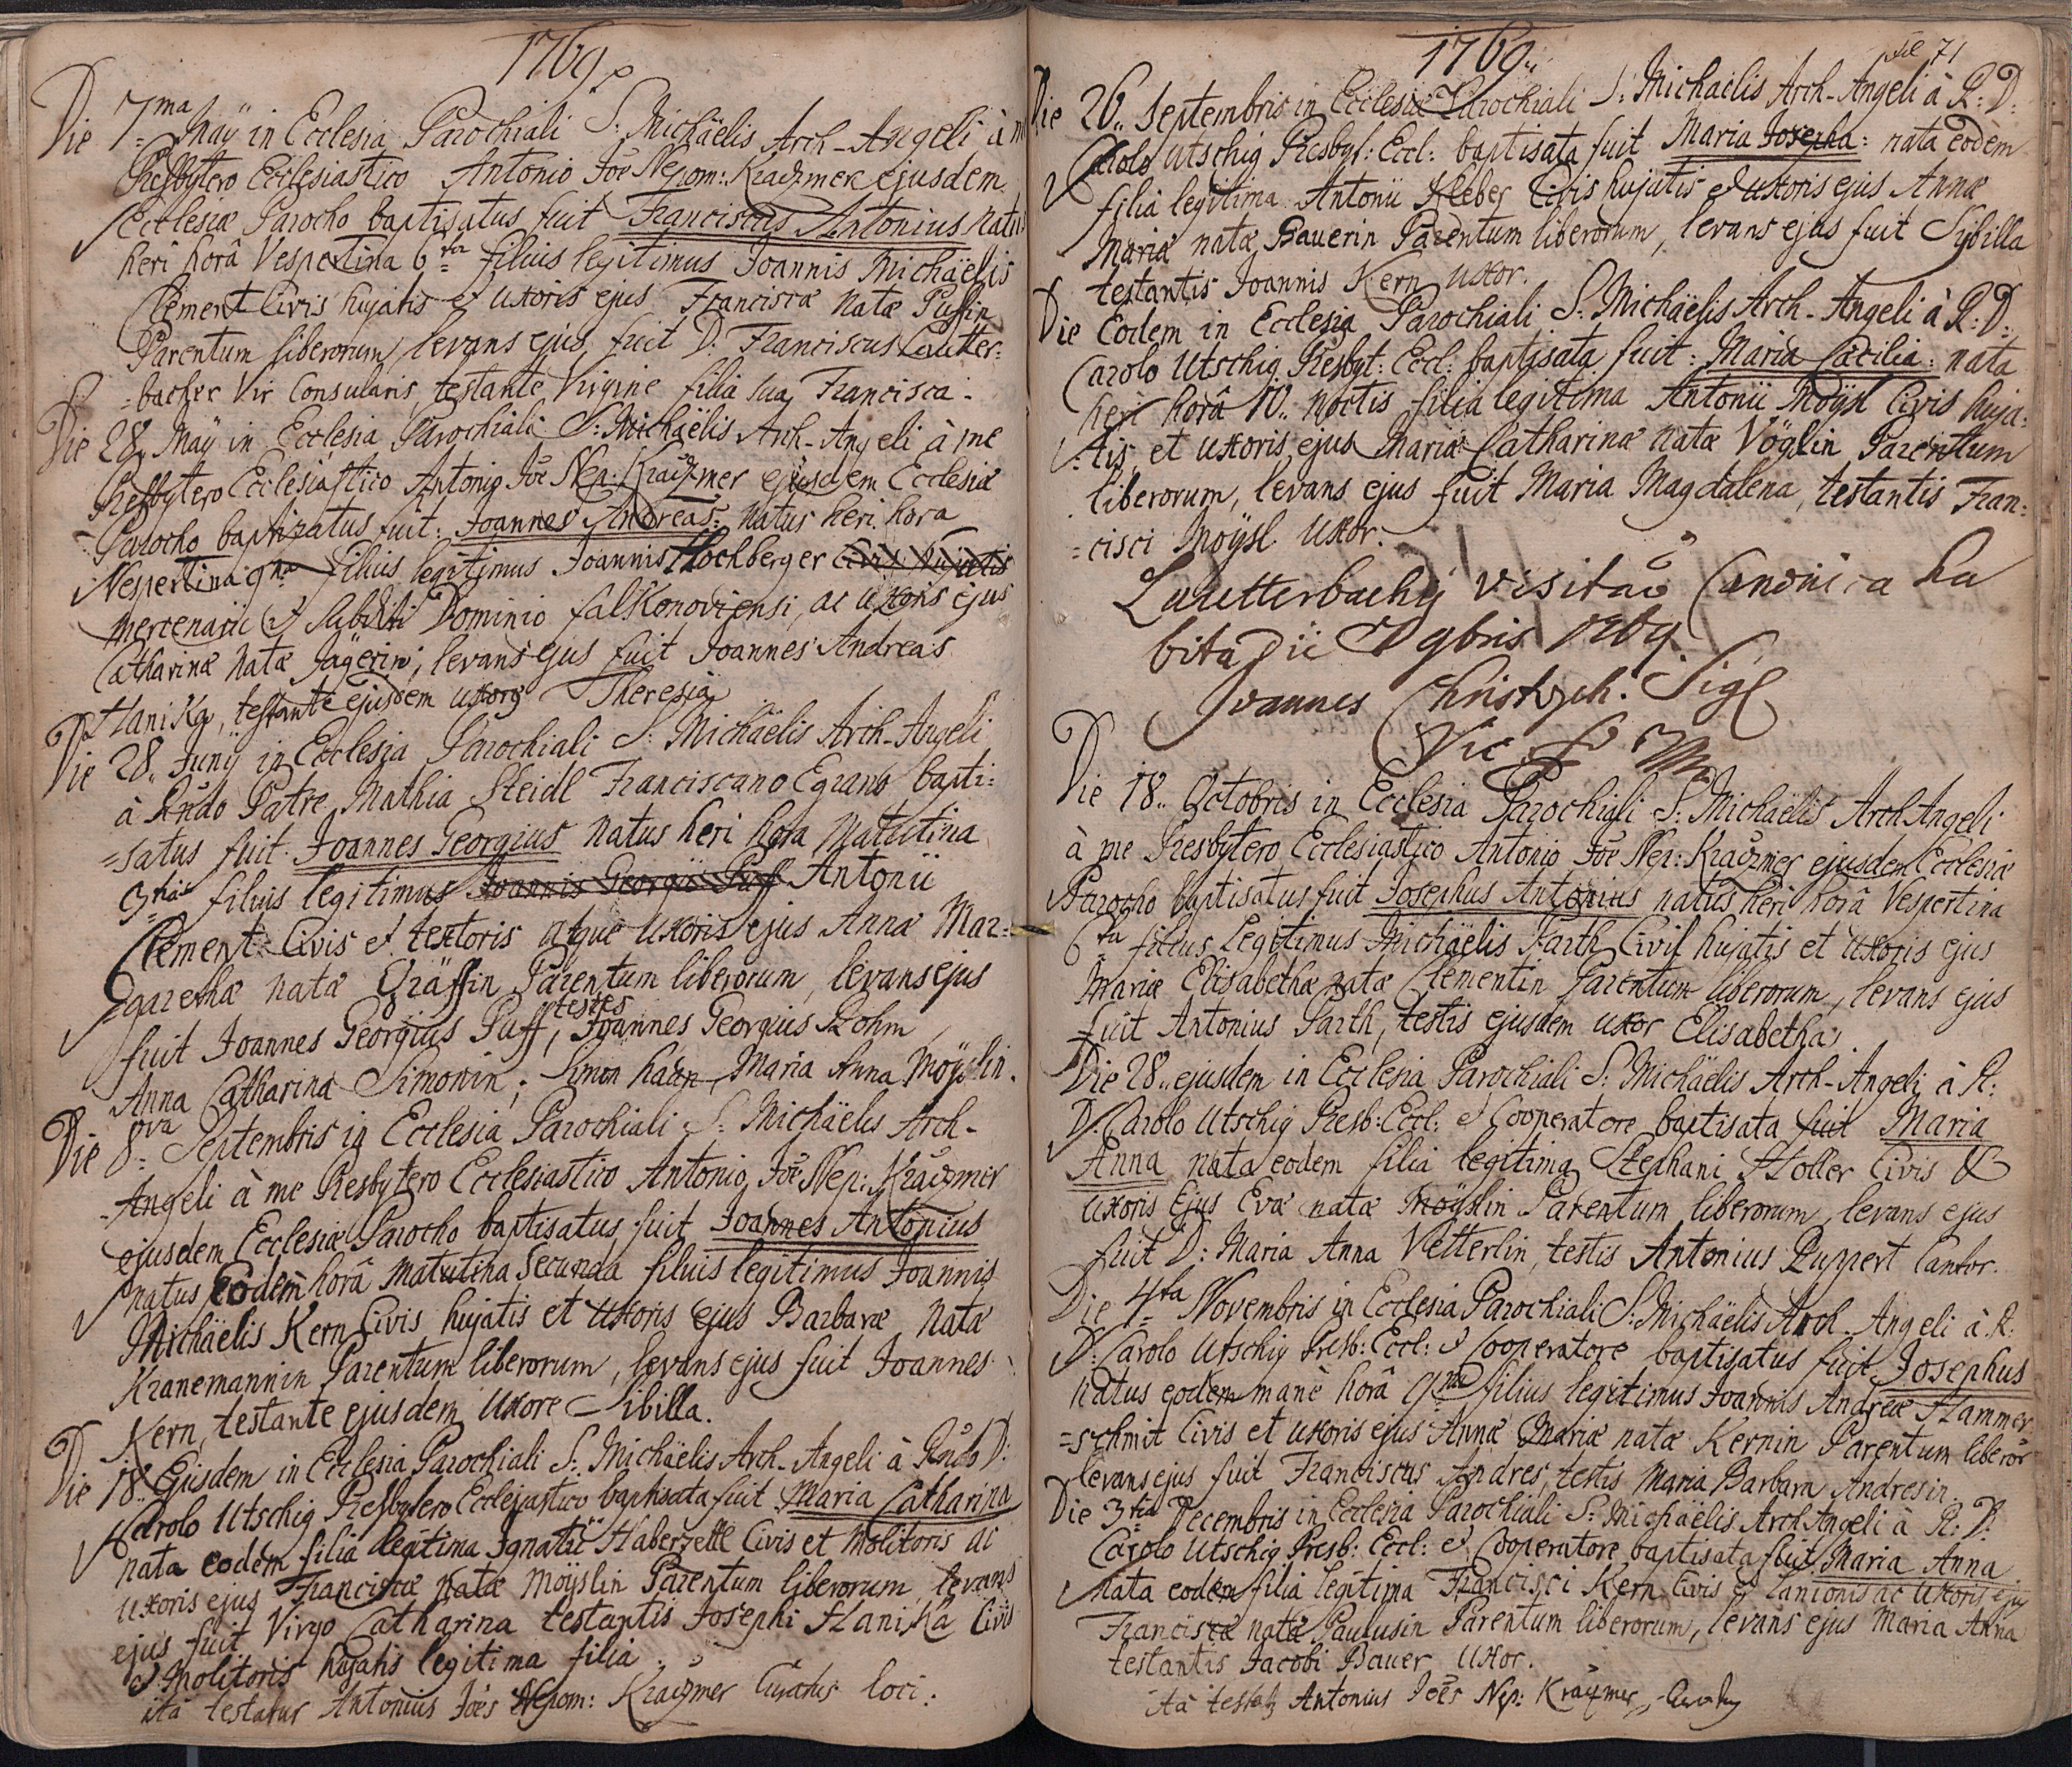 1769
Die 7ma Maÿ in Ecclesia Parochiali S: Michäelis Arch-Angeli à me
Presbytero Ecclesiastico Antonio Joē Nepom: Kraizmer ejusdem
Ecclesiæ Parocho baptisatus fuit Franciscus Antonius natus
heri horâ Vespertina 6ta filius legitimus Joannis Michäelis
Clement Civis hujatis et uxoris ejus Franciscæ natæ Puffin
Parentum liberorum, levans ejus fuit D: Franciscus Lautter=
=bacher Vir Consularis, testante Virgine filia sua Francisca.
Die 28. Maÿ in Ecclesia Parochiali S: Michäelis Arch-Angeli à me
Presbytero Ecclesiastico Antonio Joē Nep: Kraizmer ejusdem Ecclesiæ
Parocho baptizatus fuit: Joannes Andreas: natus heri hora
Vespertina 9na filius legitimus Joannis Hochberger Civis hujatis
mercenarii et subditi Dominio falkonoviensi, ac uxoris ejus
Catharinæ natæ Jägerin, levans ejus fuit Joannes Andreas
Hanika, testante ejusdem uxore Theresia
Die 28. Junÿ in Ecclesia Parochiali S: Michäelis Arch-Angeli
à Rndo Patre Mathia Steidl Franciscano Egrano bapti=
=satus fuit Joannes Georgius natus heri hora matutina
3tia filius legitimus Joannis Georgii Puff Antonii
Clement Civis et textoris atque uxoris ejus Annæ Mar=
=garethæ natæ Gräffin Parentum liberorum, levans ejus
fuit Joannes Georgius Puff, testes Joannes Georgius Böhm
Anna Catharina Simonin, Simon hahn, Maria Anna Moÿslin.
Die 8va Septembris in Ecclesia Parochiali S: Michäelis Arch-
-Angeli à me Presbytero Ecclesiastico Antonio Joē Nep: Kraizmer
ejusdem Ecclesiæ Parocho baptisatus fuit Joannes Antonius
natus Eodem horâ matutina secunda filius legitimus Joannis
Michäelis Kern Civis hujatis et uxoris ejus Barbaræ natæ
Kranemannin Parentum liberorum, levans ejus fuit Joannes
Kern, testante ejusdem uxore Sibilla.
Die 18. Ejusdem in Ecclesia Parochiali S: Michäelis Arch-Angeli à Rndo D:
Carolo Utschig Presbytero Ecclesiastico baptisata fuit Maria Catharina
nata eodem filia legitima Ignatii Haberzettl Civis et Molitoris ac
uxoris ejus Franciscæ natæ Moÿslin Parentum liberorum, levans
ejus fuit Virgo Catharina testantis Josephi Hanika Civis
et Molitoris hujatis legitima filia.
ità testatur Antonius Joēs Nepom: Kraizmer Curatus loci.
1769.
fol 71
Die 26. Septembris in Ecclesia Parochiali S: Michaelis Arch-Angeli à R: D:
Carolo Utschig Presbyt: Eccl: baptisata fuit Maria Josepha: nata eodem
filia legitima Antonii Kleber Civis hujatis et uxoris ejus Annæ
Mariæ natæ Bauerin Parentum liberorum, levans ejus fuit Sybilla
testantis Joannis Kern uxor.
Die Eodem in Ecclesia Parochiali S: Michäelis Arch-Angeli à R: D:
Carolo Utschig Presbyt: Eccl: baptisata fuit: Maria Cæcilia: nata
heri horâ 10. noctis filia legitima Antonii Moÿsl Civis huja=
=tis et uxoris ejus Mariæ Catharinæ natæ Vöglin Parentum
liberorum, levans ejus fuit Maria Magdalena, testantis Fran=
=cisci Moÿsl uxor.
Lautterbachÿ visitaō Canonica ha
bita 9bris 1769
Joannes Christoph. Sigl
Vic. F
Die 18. Octobris in Ecclesia Parochiali S: Michäelis Arch Angeli
à me Presbytero Ecclesiastico Antonio Joē Nep: Kraizmer ejusdem Ecclesiæ
Parocho baptisatus fuit Josephus Antonius natus heri horâ Vespertina
6ta filius legitimus Michäelis Parth Civis hujatis et uxoris ejus
Mariæ Elisabethæ natæ Clementin Parentum liberorum, levans ejus
fuit Antonius Parth, testis ejusdem uxor Elisabetha.
Die 28. ejusdem in Ecclesia Parochiali S: Michäelis Arch-Angeli à R:
D: Carolo Utschig Presb: Eccl: et Cooperatore baptisata fuit Maria
Anna nata eodem filia legitima Stephani Holler Civis &
uxoris Ejus Evæ natæ Moÿslin Parentum liberorum, levans ejus
fuit D: Maria Anna Vetterlin, testis Antonius Ruppert Cantor.
Die 4ta Novembris in Ecclesia Parochiali S: Michäelis Arch-Angeli à R:
D: Carolo Utschig Presb: Eccl: et Cooperatore baptisatus fuit Josephus
natus eodem manè horâ 9na filius legitimus Joannis Andreæ Hammer
=schmit Civis et uxoris ejus Annæ Mariæ natæ Kernin Parentum liberor
levans ejus fuit Franciscus Andres, testis Maria Barbara Andresin.
Die 3tia Decembris in Ecclesia Parochiali S: Michäelis Arch Angeli à R: D:
Carolo Utschig Presb: Eccl: et Cooperatore baptisata fuit Maria Anna
nata eodem filia legitima Francisci Kern Civis et Lanionis ac uxoris ejus
Franciscæ natæ Paulusin Parentum liberorum, levans ejus Maria Anna
testantis Jacobi Bauer uxor.
ità testatur Antonius Joēs Nep: Kraizmer